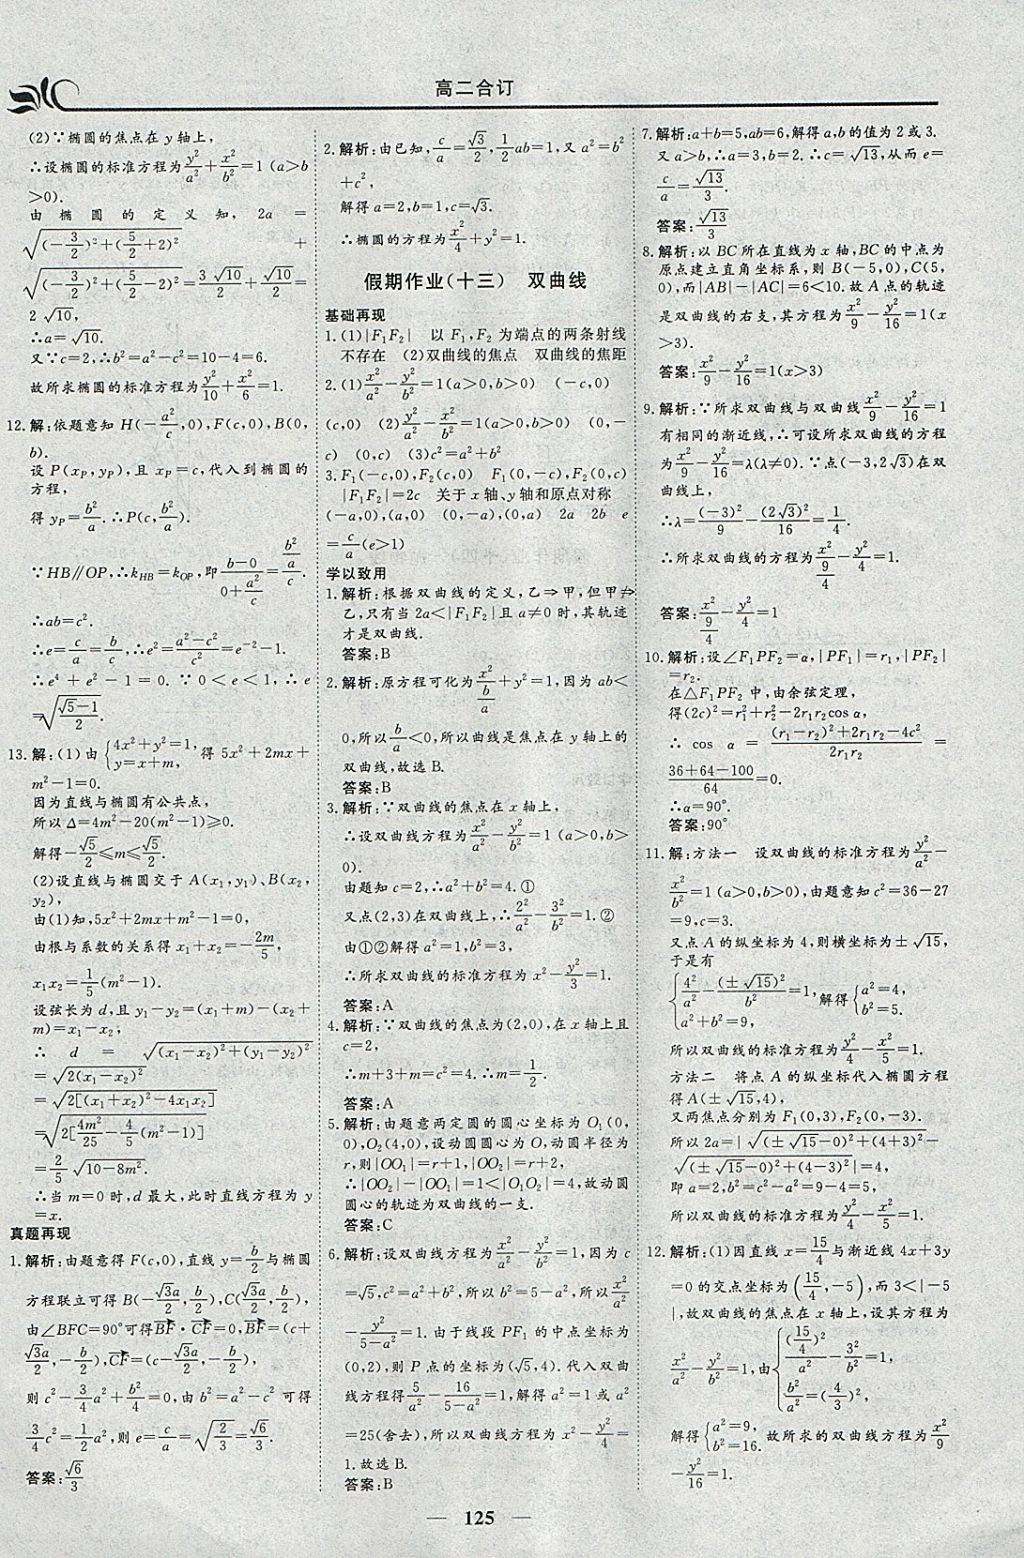 高二合订
(2)∵椭圆的焦点在y轴上,
∴设椭圆的标准方程为y²/a²+x²/b²=1(a>b
>0).
由椭圆的定义知,2a=
√((-3/2)²+(5/2+2)²) +
√((-3/2)²+(5/2-2)²)=3√10/2+√10/2=
2√10,
∴a=√10.
又∵c=2,∴b²=a²-c²=10-4=6.
故所求椭圆的标准方程为y²/10+x²/6=1.
12.解:依题意知H(-a²/c,0),F(c,0),B(0,
b).
设P(xP,yP),且xP=c,代入到椭圆的
方程,
得yP=b²/a.∴P(c,b²/a).
∵HB∥OP,∴kHB=kOP,即(b-0)/(0+a²/c)=(b²/a)/c.
∴ab=c².
∴e=c/a=b/c,∴e²=(a²-c²)/c²=e⁻²-1.
∴e⁴+e²-1=0.∵0<e<1,∴e
=√((√5-1)/2).
13.解:(1)由{4x²+y²=1, y=x+m,得5x²+2mx+
m²-1=0.
因为直线与椭圆有公共点,
所以Δ=4m²-20(m²-1)≥0.
解得-√5/2≤m≤√5/2.
(2)设直线与椭圆交于A(x₁,y₁)、B(x₂,
y₂),
由(1)知,5x²+2mx+m²-1=0,
由根与系数的关系得x₁+x₂=-2m/5,
x₁x₂=1/5(m²-1).
设弦长为d,且y₁-y₂=(x₁+m)-(x₂+
m)=x₁-x₂,
∴d=√((x₁-x₂)²+(y₁-y₂)²)
=√(2(x₁-x₂)²)
=√(2[(x₁+x₂)²-4x₁x₂])
=√(2[4m²/25-4/5(m²-1)])
=2/5√(10-8m²).
∴当m=0时,d最大,此时直线方程为y
=x.
真题再现
1.解析:由题意得F(c,0),直线y=b/2与椭圆
方程联立可得B(-√3a/2,b/2),C(√3a/2,b/2),
由∠BFC=90°可得BF·CF=0,BF=(c+
√3a/2,-b/2),CF=(c-√3a/2,-b/2),
则c²-3/4a²+b²/4=0,由b²=a²-c²可得
3/4c²=1/2a²,则e=c/a=√(2/3)=√6/3.
答案:√6/3
2.解析:由已知,c/a=√3/2,1/2ab=1,又a²=b²
+c²,
解得a=2,b=1,c=√3.
∴椭圆的方程为x²/4+y²=1.
假期作业(十三) 双曲线
基础再现
1.(1)|F₁F₂| 以F₁,F₂为端点的两条射线
不存在 (2)双曲线的焦点 双曲线的焦距
2.(1)x²/a²-y²/b²=1(a>0,b>0) (-c,0)
(c,0) (2)y²/a²-x²/b²=1(a>0,b>0) (0,-
c) (0,c) (3)c²=a²+b²
3.F₁(-c,0),F₂(c,0) F₁(0,-c),F₂(0,c)
|F₁F₂|=2c 关于x轴、y轴和原点对称
(-a,0),(a,0) (0,-a),(0,a) 2a 2b e
=c/a(e>1)
学以致用
1.解析:根据双曲线的定义,乙⇒甲,但甲⇏
乙,只有当2a<|F₁F₂|且a≠0时,其轨迹
才是双曲线.
答案:B
2.解析:原方程可化为x²/(b/a)+y²=1,因为ab<
0,所以b/a<0,所以曲线是焦点在y轴上的
双曲线,故选B.
答案:B
3.解析:∵双曲线的焦点在x轴上,
∴设双曲线方程为x²/a²-y²/b²=1(a>0,b>
0).
由题知c=2,∴a²+b²=4.①
又点(2,3)在双曲线上,∴2²/a²-3²/b²=1.②
由①②解得a²=1,b²=3,
∴所求双曲线的标准方程为x²-y²/3=1.
答案:A
4.解析:∵双曲线的焦点为(2,0),在x轴上且
c=2,
∴m+3+m=c²=4.∴m=1/2.
答案:A
5.解析:由题意两定圆的圆心坐标为O₁(0,
0),O₂(4,0),设动圆圆心为O,动圆半径为
r,则|OO₁|=r+1,|OO₂|=r+2,
∴|OO₂|-|OO₁|=1<|O₁O₂|=4,故动圆
圆心的轨迹为双曲线的一支.
答案:C
6.解析:设双曲线方程为x²/a²-y²/b²=1,因为c
=√5,c²=a²+b²,所以b²=5-a²,所以x²/a²
-y²/(5-a²)=1.由于线段PF₁的中点坐标为
(0,2),则P点的坐标为(√5,4).代入双曲
线方程得5/a²-16/(5-a²)=1,解得a²=1或a²
=25(舍去),所以双曲线方程为x²-y²/4=
1.故选B.
答案:B
7.解析:a+b=5,ab=6,解得a,b的值为2或3.
又a>b,∴a=3,b=2.∴c=√13,从而e=
c/a=√13/3.
答案:√13/3
8.解析:以BC所在直线为x轴,BC的中点为
原点建立直角坐标系,则B(-5,0),C(5,
0),而|AB|-|AC|=6<10.故A点的轨迹
是双曲线的右支,其方程为x²/9-y²/16=1(x
>3).
答案:x²/9-y²/16=1(x>3)
9.解析:∵所求双曲线与双曲线x²/9-y²/16=1
有相同的渐近线,∴可设所求双曲线的方程
为x²/9-y²/16=λ(λ≠0).∵点(-3,2√3)在双
曲线上,
∴λ=(-3)²/9-(2√3)²/16=1/4.
∴所求双曲线的方程为x²/(9/4)-y²/4=1.
答案:x²/(9/4)-y²/4=1
10.解析:设∠F₁PF₂=α,|PF₁|=r₁,|PF₂|
=r₂.
在△F₁PF₂中,由余弦定理,
得(2c)²=r₁²+r₂²-2r₁r₂cos α,
∴cos α=((r₁-r₂)²+2r₁r₂-4c²)/(2r₁r₂)=
(36+64-100)/64=0.
∴α=90°.
答案:90°
11.解:方法一 设双曲线的标准方程为y²/a²-
x²/b²=1(a>0,b>0),由题意知c²=36-27
=9,c=3.
又点A的纵坐标为4,则横坐标为±√15,
于是有
{4²/a²-(±√15)²/b²=1, a²+b²=9, 解得{a²=4, b²=5.
所以双曲线的标准方程为y²/4-x²/5=1.
方法二 将点A的纵坐标代入椭圆方程
得A(±√15,4),
又两焦点分别为F₁(0,3),F₂(0,-3).
所以2a=|√((±√15-0)²+(4+3)²)-
√((±√15-0)²+(4-3)²)|=4,
即a=2,b²=c²-a²=9-4=5,
所以双曲线的标准方程为y²/4-x²/5=1.
12.解析:(1)因直线x=15/4与渐近线4x+3y
=0的交点坐标为(15/4,-5),而3<|-5
|,故双曲线的焦点在x轴上,设其方程为
x²/a²-y²/b²=1,由{(15/4)²/a²-3²/b²=1, b²/a²=(4/3)²,
解得{a²=9, b²=16. 故所求的双曲线方程为x²/9
-y²/16=1.
— 125 —